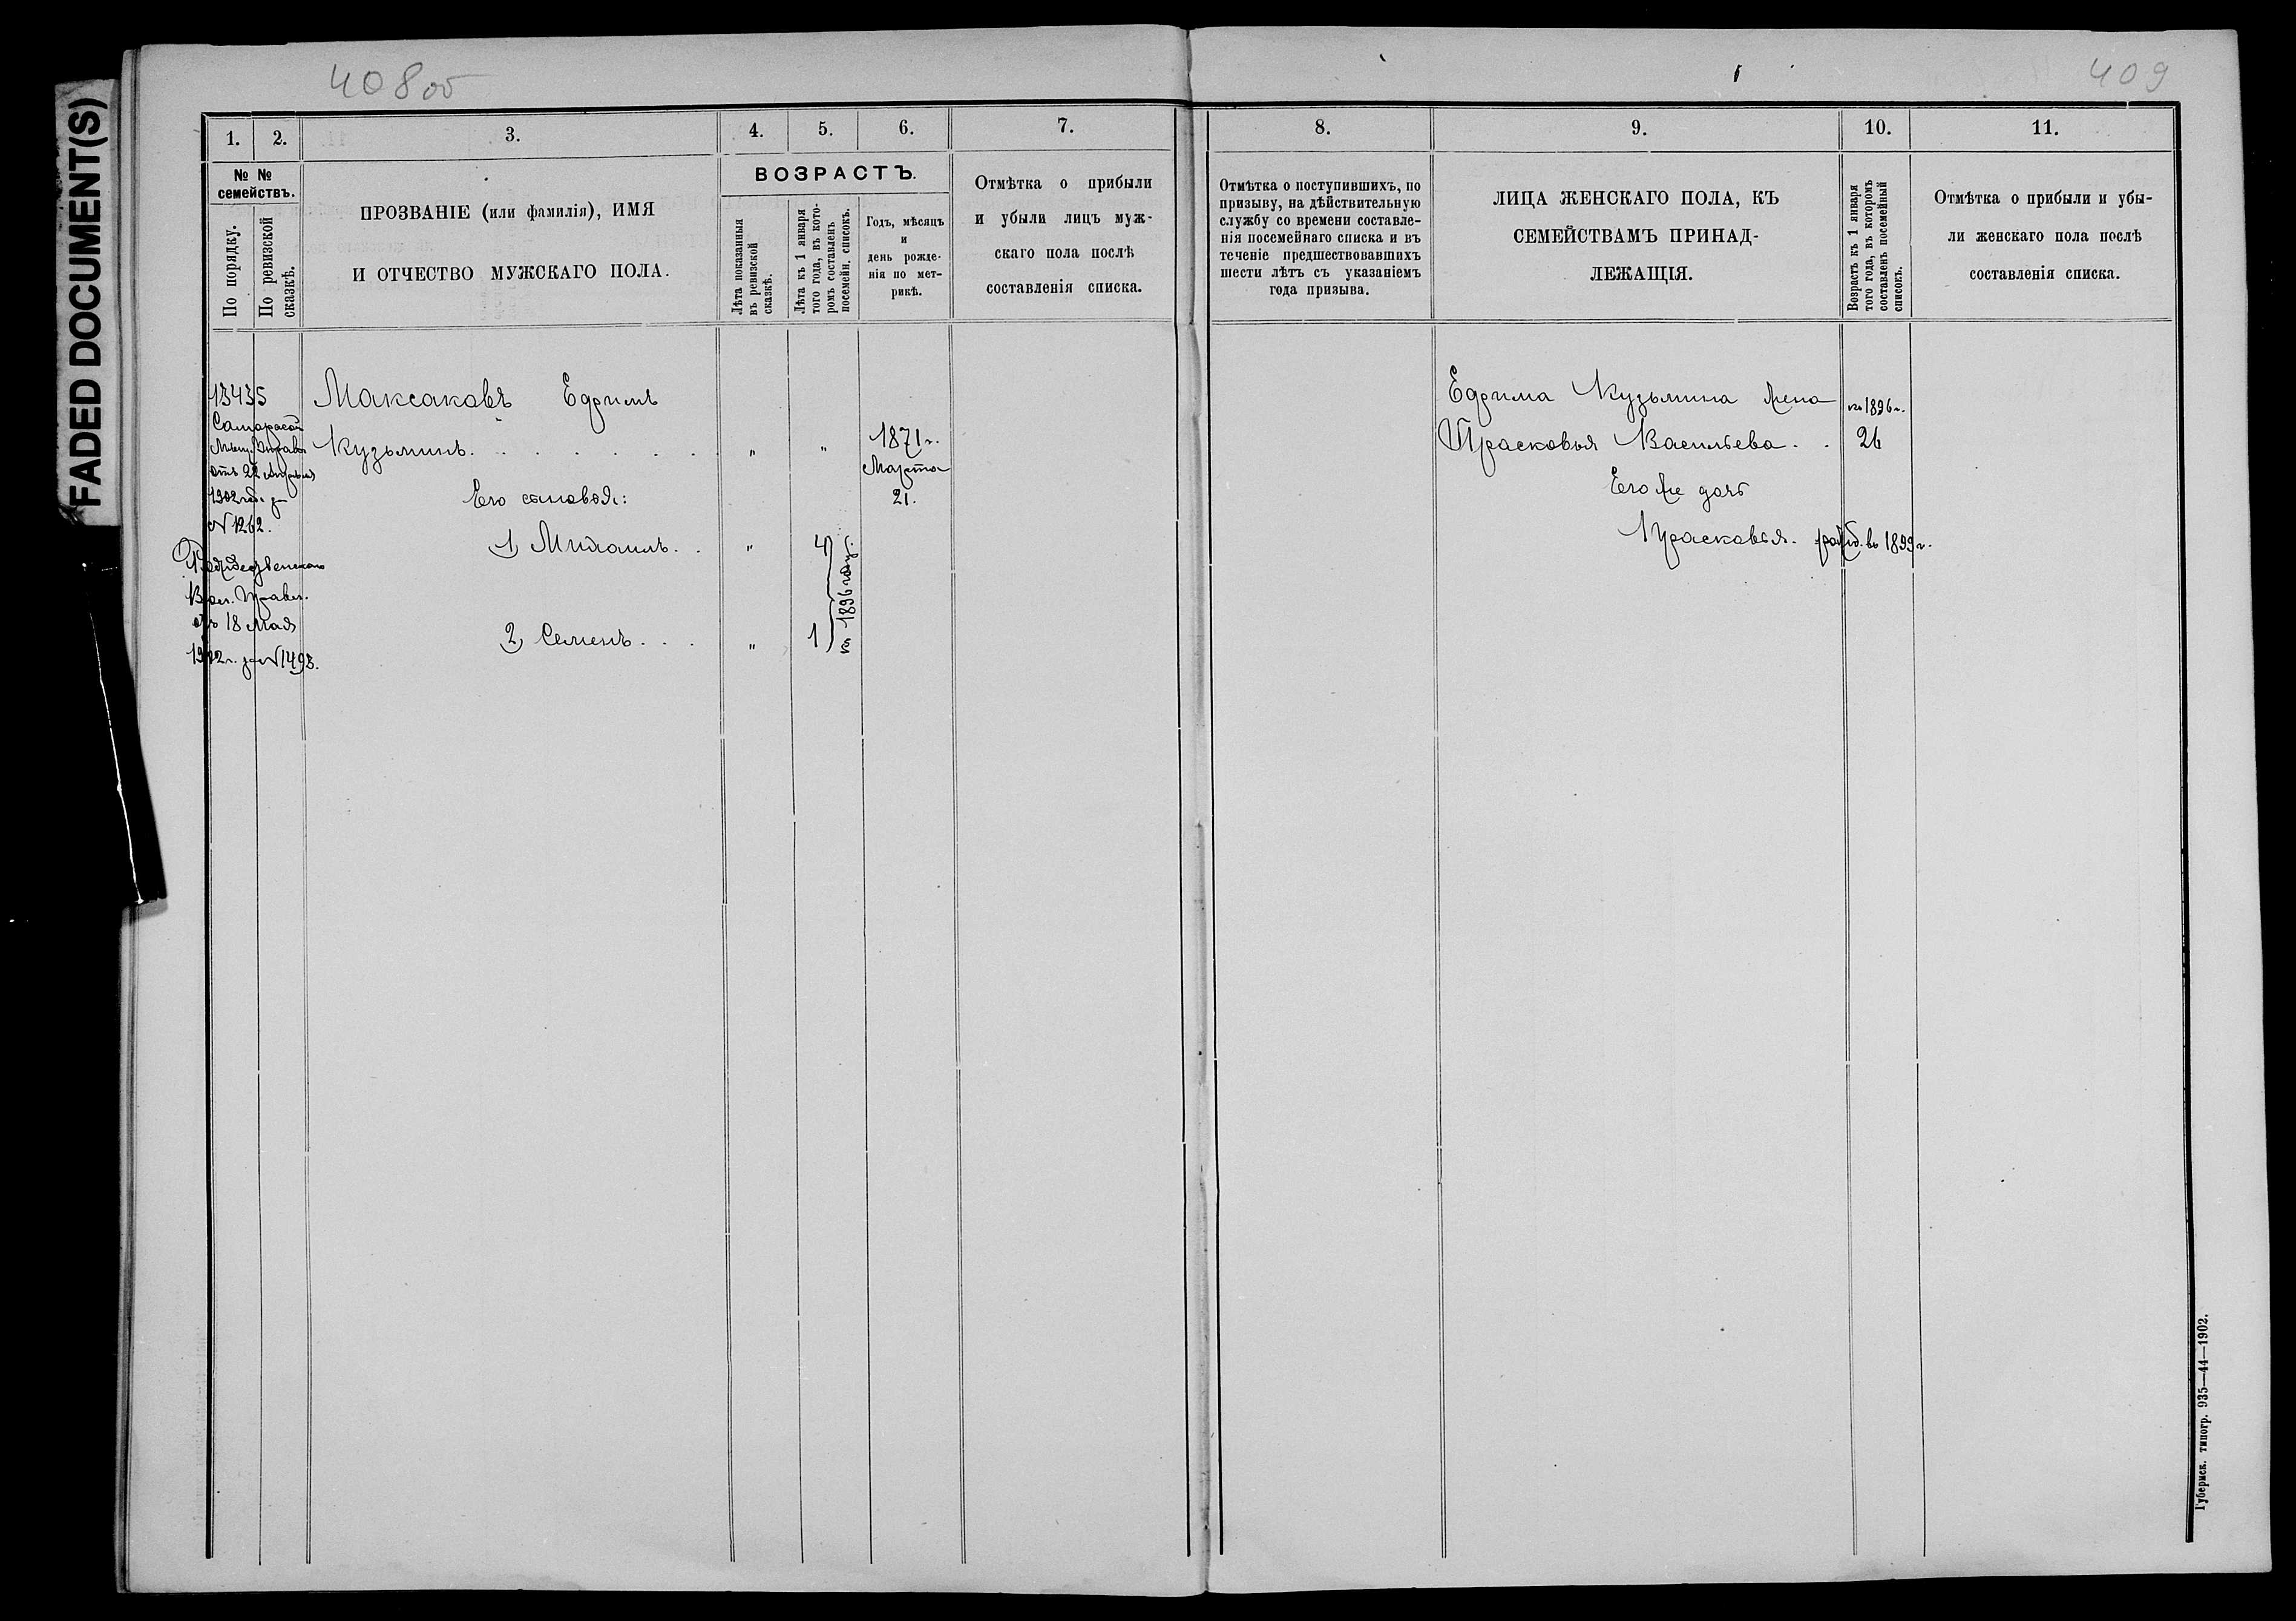 FADED DOCUMENT(S)
408 об
409
1.
2.
3.
4.
5.
6.
7.
8.
9.
10.
11.
№ № семействъ.
По порядку.
По ревизской сказкѣ.
ПРОЗВАНІЕ (или фамилія), ИМЯ
И ОТЧЕСТВО МУЖСКАГО ПОЛА.
ВОЗРАСТЪ.
Лѣта показанныя
въ ревизской
сказкѣ.
Лѣта къ 1 января
того года, въ кото-
ромъ составленъ
посемейн. списокъ.
Годъ, мѣсяцъ
и
день рожде-
нія по мет-
рикѣ.
Отмѣтка о прибыли
и убыли лицъ муж-
скаго пола послѣ
составленія списка.
Отмѣтка о поступившихъ, по
призыву, на дѣйствительную
службу со времени составле-
нія посемейнаго списка и въ
теченіе предшествовавшихъ
шести лѣтъ съ указаніемъ
года призыва.
ЛИЦА ЖЕНСКАГО ПОЛА, КЪ
СЕМЕЙСТВАМЪ ПРИНАД-
ЛЕЖАЩІЯ.
Возрастъ къ 1 января
того года, въ которомъ
составленъ посемейный
списокъ.
Отмѣтка о прибыли и убы-
ли женскаго пола послѣ
составленія списка.
13435
Самарской
Мѣщ. Управы
отъ 22 Апрѣля
1902 года за
№ 1262.
Рождественскаго
Вол. Правл.
отъ 18 Мая
1902 г. за № 1493.
Максаковъ Ефримъ
Кузьминъ. . . . . . . " "
1871 г.
Марта
21.
Его сыновья:
1) Михаилъ. . " 4
2) Семенъ. . . " 1
къ 1896 году.
Ефрима Кузьмина жена
къ 1896 г.
Прасковья Васильева. . 26
Его же дочь
Прасковья. рожд. въ 1899 г.
Губернск. типогр. 935—44—1902.